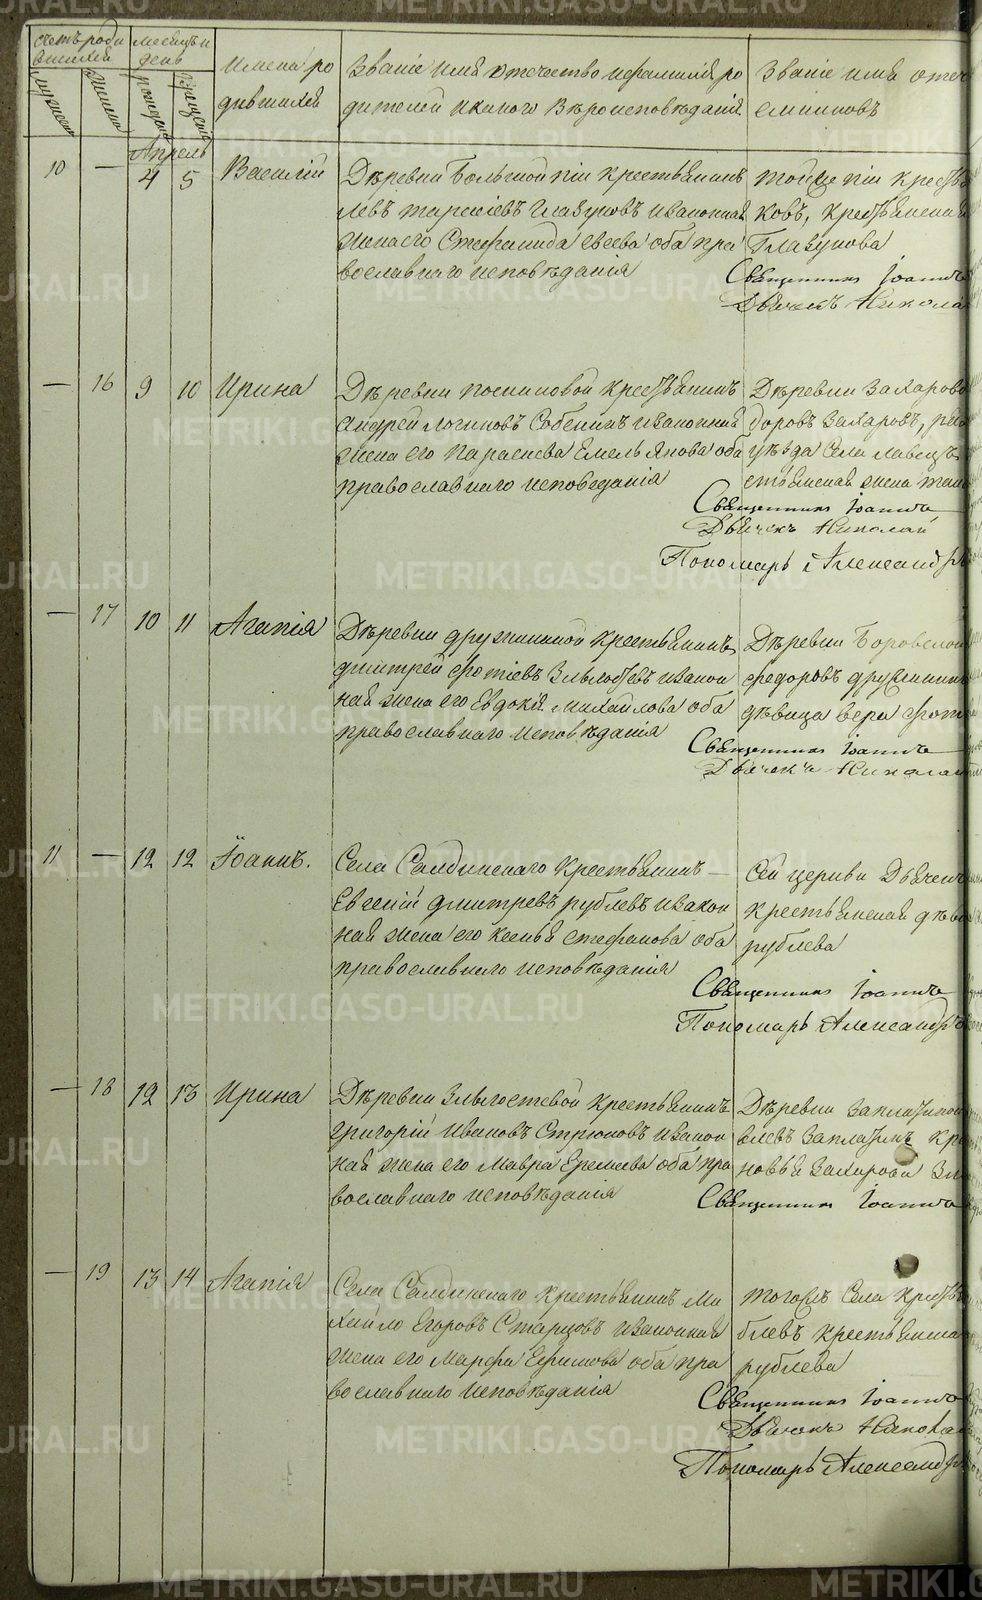 счетъ роди
вшихся
мѣсяцъ и
день
мужеска
женска
рожденія
крещенія
Имена ро
дившихся
Званіе имя отечество и фамилія ро
дителей и какого Вѣроисповѣданія
Званіе имя отеч
емниковъ
Апрель
10 — 4 5 Василій
Дѣревни Большой пiи крестьянинъ
левъ тарасіевъ Главуновъ и законная
жена его Стефанида евсева оба пра
вославнаго исповѣданія
тойже пiи кресть
ковъ, крестьянская
Главунова
Священникъ Іоаннъ
Дьячекъ Никола
— 16 9 10 Ирина
Дѣревни посниковой крестьянинъ
Андрей логиновъ Собенинъ и законная
жена его Параскева Емельянова оба
православнаго исповеданія
Дѣревни Захарово
доровъ Захаровъ,
уѣзда села
жена
Священникъ Іоаннъ
Дьячекъ Николай
Пономарь Александръ
— 17 10 11 Агапія
Дѣревни дружининой крестьянинъ
дмитрей фотіевъ Зыблотвъ и закон
ная жена его Евдокія Михайлова оба
православнаго исповѣданія
Дѣревни Боровской
федоровъ дружинин
дѣвица вера фот
Священникъ Іоаннъ
Дьячекъ Николай
11 — 12 12 Іоаннъ.
Села Салдинскаго крестьянинъ
Евгеній дмитревъ рублевъ и закон
ная жена его ксенья стефанова оба
православнаго исповѣданія
Сей церкви Дьячек
крестьянская дѣв
рублева
Священникъ Іоаннъ
Пономарь Александръ
— 18 12 13 Ирина
Дѣревни Злыгостевой крестьянинъ
григорій Ивановъ Стрюковъ и закон
ная жена его Мавра Еремеева оба пра
вославнаго исповѣданія
Дѣревни Заплатиной
влевъ Заплатинъ кре
новья Захарова
Священникъ Іоаннъ
— 19 13 14 Агапія
Села Салдинскаго крестьянинъ Ми
хайло Егоровъ Старцовъ и законная
жена его Марфа Ефимова оба пра
вославнаго исповѣданія
тогожъ Села кресть
блевъ крестьянска
рублева
Священникъ Іоаннъ
Дьячекъ Никола
Пономарь Александръ
METRIKI.GASO-URAL.RU